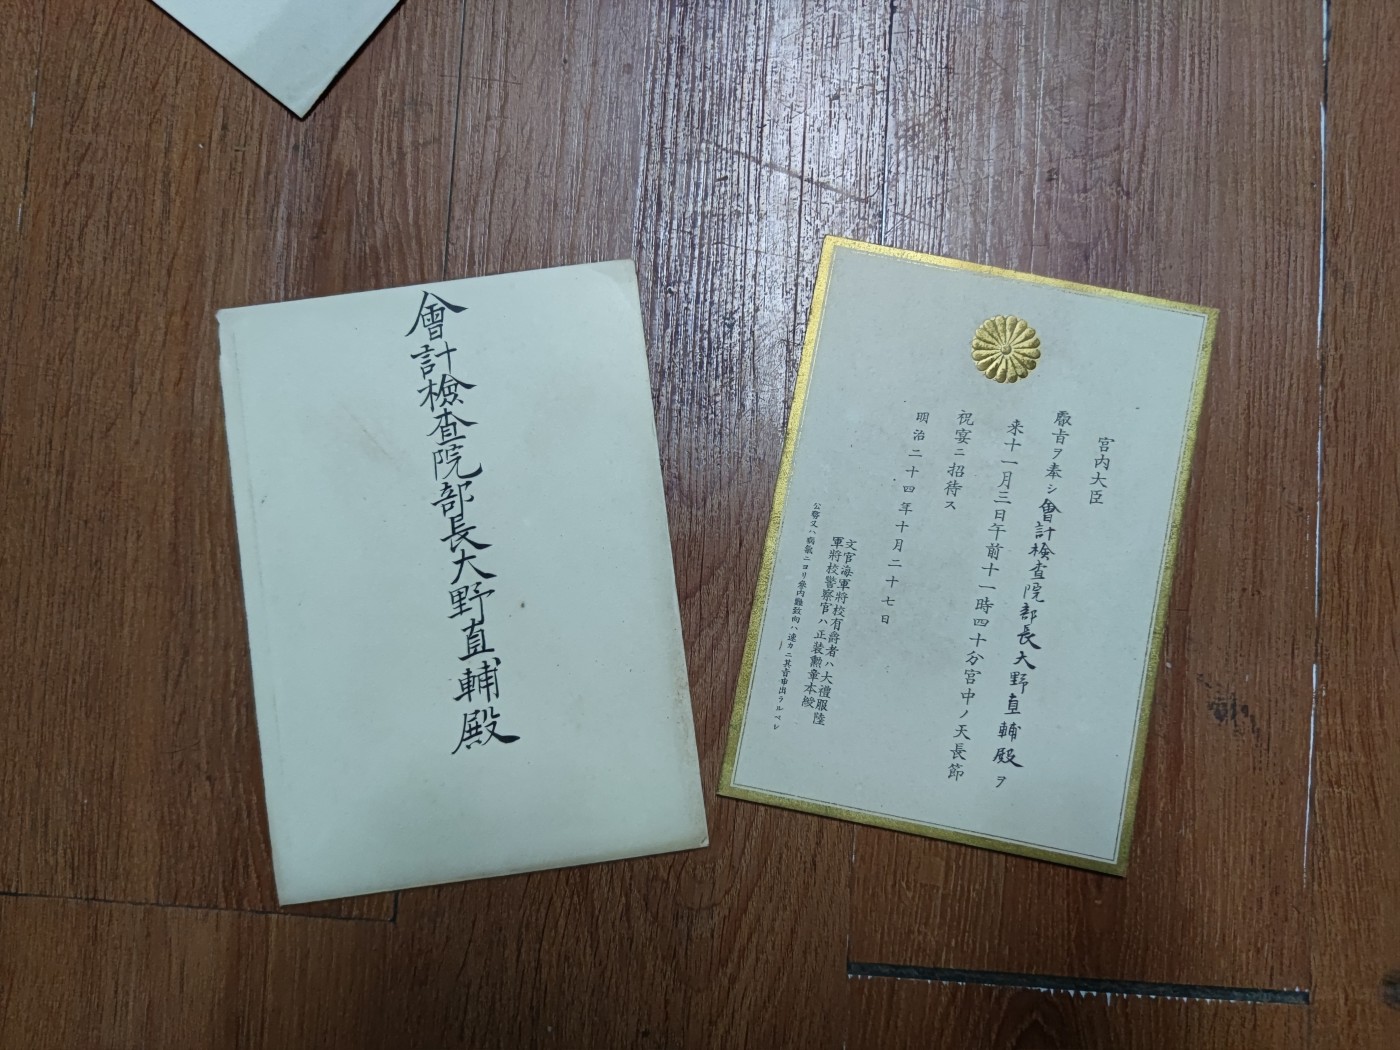 會計檢査院部長大野直輔殿
宮内大臣
聖旨ヲ奉シ會計檢査院部長大野直輔殿ヲ
来十一月三日午前十一時四十分宮中ノ天長節
祝宴ニ招待ス
明治二十四年十月二十七日
文官海軍將校有爵者ハ大禮服陸
軍將校警察官ハ正装勲章本綬
公務又ハ病氣ニヨリ参内難致向ハ速カニ其旨申出ラルベシ